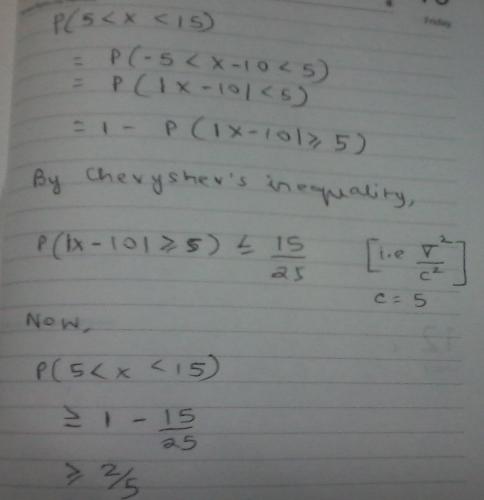 Friday
P(5 < x < 15)
= P(-5 < x-10 < 5)
= P(|x-10| < 5)
= 1 - P(|x-10| ≥ 5)
By Chevyshev's inequality,
P(|x-10| ≥ 5) ≤ 15/25 [i.e σ²/c²]
c = 5
Now,
P(5 < x < 15)
≥ 1 - 15/25
≥ 2/5